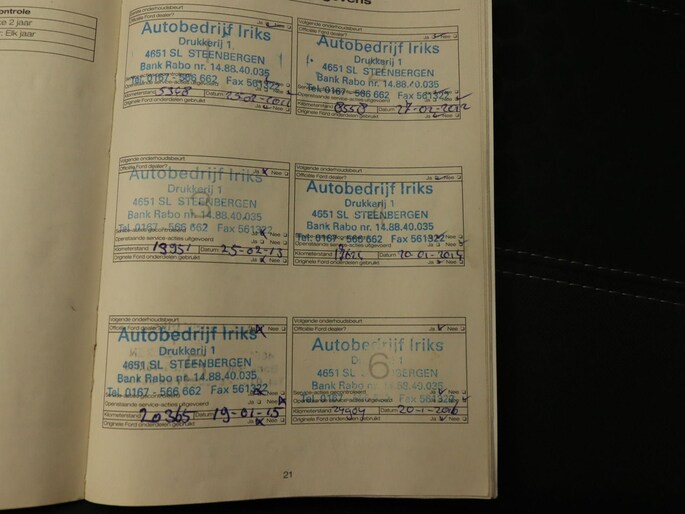 ontrole
e 2 jaar
: Elk jaar
Officiële Ford dealer? Ja Nee
Autobedrijf Iriks
Drukkerij 1
4651 SL STEENBERGEN
Bank Rabo nr. 14.88.40.035
Tel. 0167 - 566 662 Fax 561322
Openstaande service-acties uitgevoerd Ja Nee
Kilometerstand Datum 25-02-2011
Originele Ford onderdelen gebruikt Ja Nee
Autobedrijf Iriks
Drukkerij 1
4651 SL STEENBERGEN
Bank Rabo nr. 14.88.40.035
Tel. 0167 - 566 662 Fax 561322
Openstaande service-acties uitgevoerd Ja Nee
Kilometerstand Datum 27-02-2012
Originele Ford onderdelen gebruikt Ja Nee
Volgende onderhoudsbeurt
Officiële Ford dealer? Ja Nee
Autobedrijf Iriks
Drukkerij 1
4651 SL STEENBERGEN
Bank Rabo nr. 14.88.40.035
Tel. 0167 - 566 662 Fax 561322
Openstaande service-acties uitgevoerd Ja Nee
Kilometerstand Datum 25-02-13
Originele Ford onderdelen gebruikt Ja Nee
Volgende onderhoudsbeurt
Officiële Ford dealer? Ja Nee
Autobedrijf Iriks
Drukkerij 1
4651 SL STEENBERGEN
Bank Rabo nr. 14.88.40.035
Tel. 0167 - 566 662 Fax 561322
Openstaande service-acties uitgevoerd Ja Nee
Kilometerstand Datum 20-01-2014
Originele Ford onderdelen gebruikt Ja Nee
Volgende onderhoudsbeurt
Officiële Ford dealer? Ja Nee
Autobedrijf Iriks
Drukkerij 1
4651 SL STEENBERGEN
Bank Rabo nr. 14.88.40.035
Tel. 0167 - 566 662 Fax 561322
Openstaande service-acties uitgevoerd Ja Nee
Kilometerstand 20365 Datum 19-01-15
Originele Ford onderdelen gebruikt Ja Nee
Volgende onderhoudsbeurt
Officiële Ford dealer? Ja Nee
Autobedrijf Iriks
Drukkerij 1
4651 SL STEENBERGEN
6
Bank Rabo nr. 14.88.40.035
Service-acties gecontroleerd Ja Nee
Openstaande service-acties uitgevoerd Ja Nee
Kilometerstand Datum 20-1-2016
Originele Ford onderdelen gebruikt Ja Nee
21